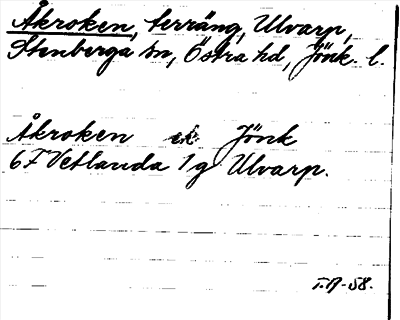 Åkroken, terräng, Ulvarp,
Stenberga sn, Östra hd, Jönk. l.
Åkroken ek. Jönk
6F Vetlanda 1g Ulvarp.
T.A-58.